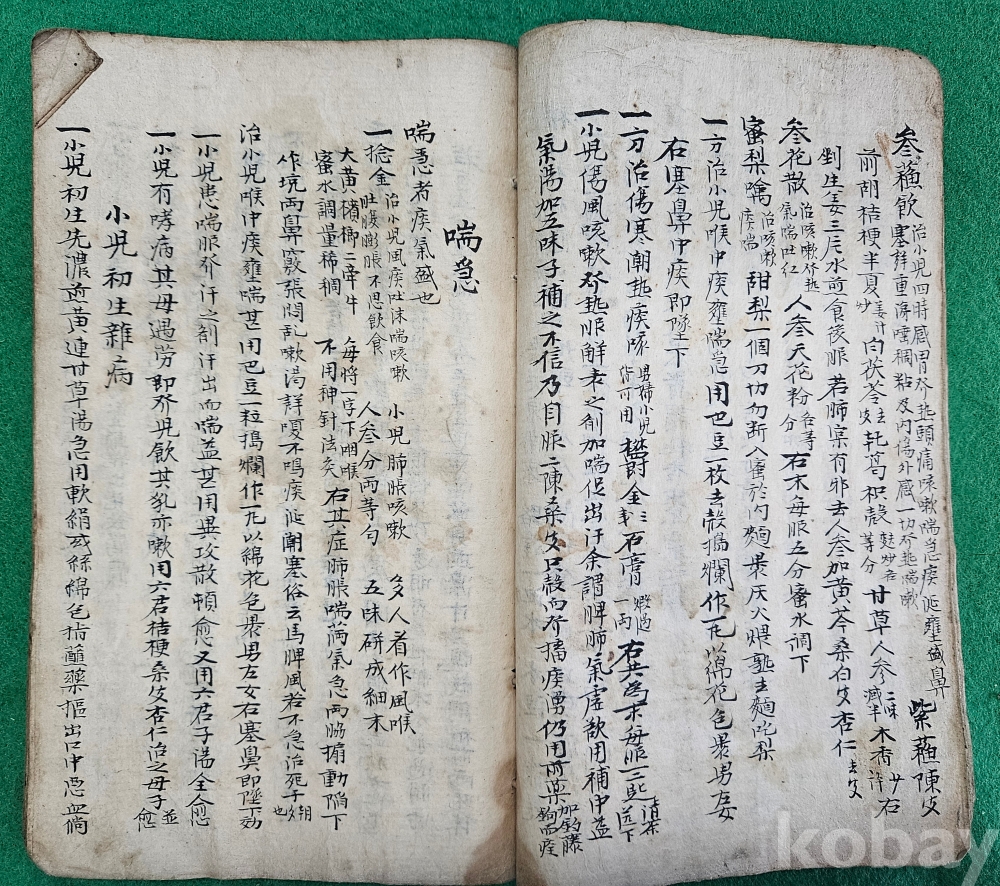 參蘓飲 治小児四時感冒發熱頭痛咳嗽喘急痰涎壅盛鼻塞鮮重涕唾稠粘及內傷外感一切發熱喘嗽 紫蘓陳皮
前胡桔梗半夏姜汁炒白茯苓去皮乾葛枳殼麩炒各等分甘草人參二味減半木香少許右
剉生姜三片水煎食後服若肺寔有邪去人參加黃芩桑白皮杏仁去皮
參花散 治咳嗽發熱氣喘吐紅 人參天花粉各等分右末每服五分蜜水調下
蜜梨噙 治咳嗽痰喘 甜梨一個刀切勿斷入蜜於內麵裹灰火煨熟去麵吃梨
一方治小児喉中痰壅喘急用巴豆一枚去殼搗爛作一丸以綿花包裹男左女
右塞鼻中痰即墜下
一方治傷寒潮熱痰啄 男婦小児皆可用 欝金三戔石膏煅過一両右共為末每服三匙清茶送下
一小児傷風咳嗽發熱服解表之劑加喘促出汗余謂脾肺氣虛欲用補中益
氣湯加五味子補之不信乃自服二陳桑皮只殼而發搐痰湧仍用前藥加釣藤鉤而痊
喘急
喘急者痰氣盛也
一捻金 治小児風痰吐沫喘咳嗽肚腹膨脹不思飲食 小児肺脹咳嗽 多人看作風喉
大黃檳榔二牽牛 人參分両等勻 五味硏成細末
蜜水調量稀稠 每將一字下咽喉 不用神針法灸 右其症肺脹喘滿氣急両脇搧動陷下
作坑両鼻竅張悶乱嗽渴聲嗄不鳴痰涎潮塞俗云馬脾風若不急治死于朝夕也
治小児喉中痰壅喘甚用巴豆一粒搗爛作一丸以綿花包裹男左女右塞鼻即墜下効
一小児患喘服發汗之劑汗出而喘益甚用異攻散頓愈又用六君子湯全愈
一小児有哮病其母過劳即發児飲其乳亦嗽用六君桔梗桑皮杏仁治之母子並愈
小児初生雜病
一小児初生先濃煎黃連甘草湯急用軟絹或絲綿包指蘸藥摳出口中惡血倘
kobay